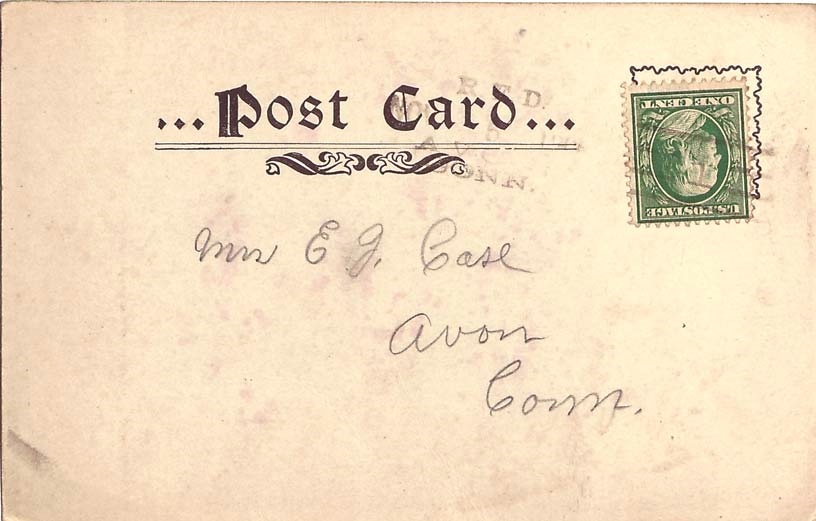 ...Post Card...
R.F.D.
CONN.
ONE CENT
U.S. POSTAGE
Mrs E J. Case
Avon
Conn.